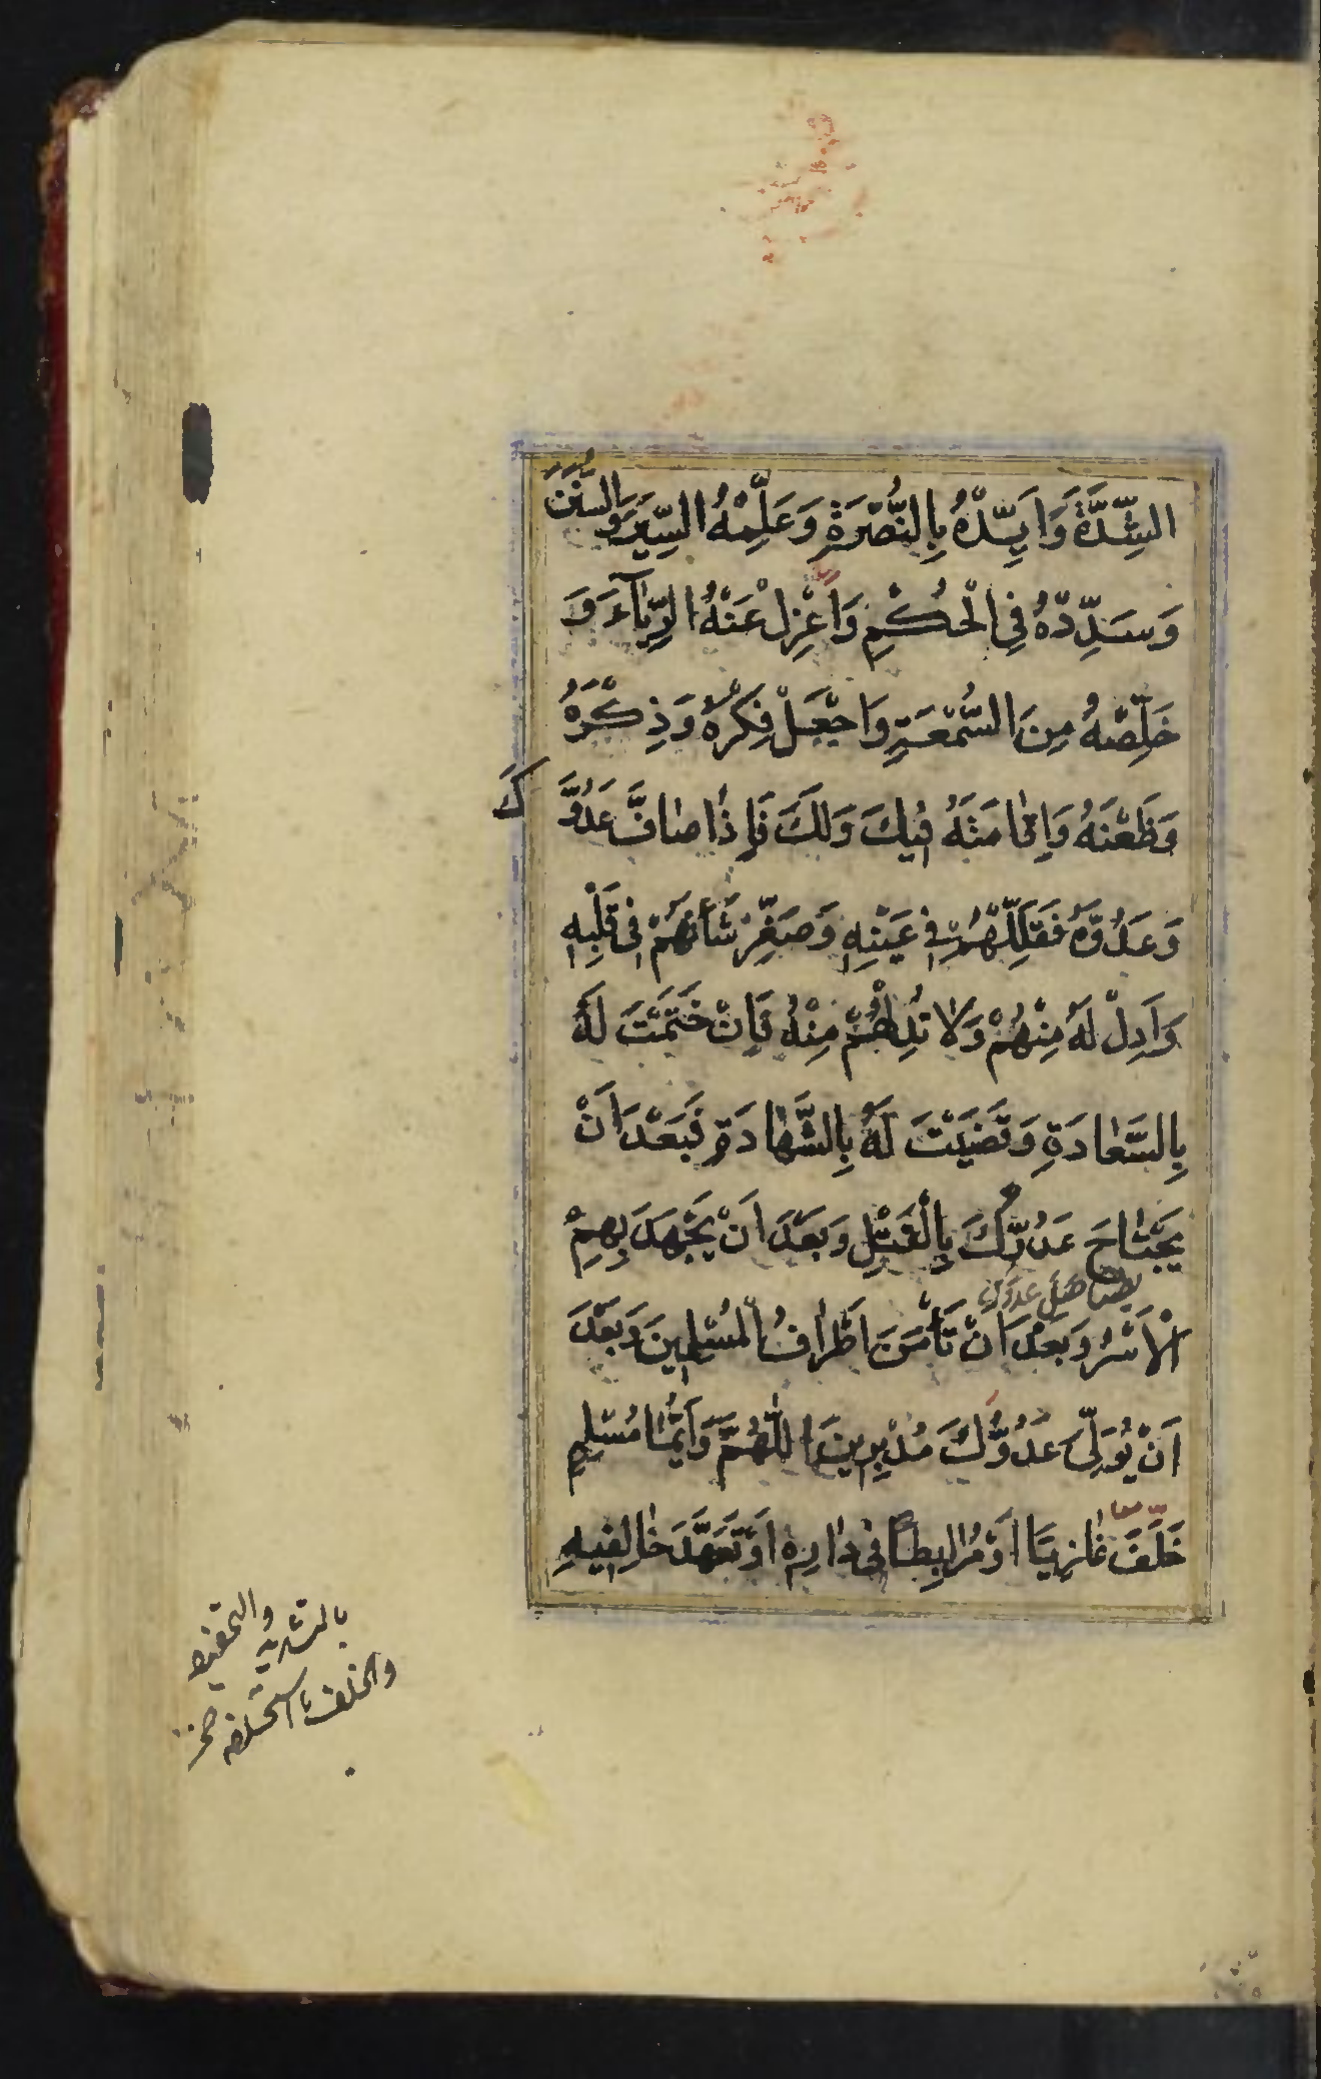 الشِّدَّةَ وَاَيِّدْهُ بِالنُّصْرَةِ وَعَلِّمْهُ السِّيَرَ وَالسُّنَنَ
وَسَدِّدْهُ فِى الْحُكْمِ وَاعْزِلْ عَنْهُ الرِّيَآءَ وَ
خَلِّصْهُ مِنَ السُّمْعَةِ وَاجْعَلْ فِكْرَهُ وَذِكْرَهُ
وَظَعْنَهُ وَاِقَامَتَهُ فِيكَ وَلَكَ فَاِذَا صَافَّ عَدُوَّكَ
وَعَدُوَّهُ فَقَلِّلْهُمْ فِى عَيْنِهِ وَصَغِّرْ شَأْنَهُمْ فِى قَلْبِهِ
وَاَدِلْ لَهُ مِنْهُمْ وَلَا تُدِلْهُمْ مِنْهُ فَاِنْ خَتَمْتَ لَهُ
بِالسَّعَادَةِ وَقَضَيْتَ لَهُ بِالشَّهَادَةِ فَبَعْدَ اَنْ
يَجْتَاحَ عَدُوَّكَ بِالْقَتْلِ وَبَعْدَ اَنْ يَجْهَدَ بِهِمُ
الْاَسْرُ وَبَعْدَ اَنْ تَأْمَنَ اَطْرَافُ الْمُسْلِمِينَ وَبَعْدَ
اَنْ يُوَلِّىَ عَدُوُّكَ مُدْبِرِينَ اَللّٰهُمَّ وَاَيُّمَا مُسْلِمٍ
خَلَفَ غَازِيًا اَوْ مُرَابِطًا فِى دَارِهِ اَوْ تَعَهَّدَ خَالِفِيهِ
بالتشديد والتخفيف
والخلف استخلفه